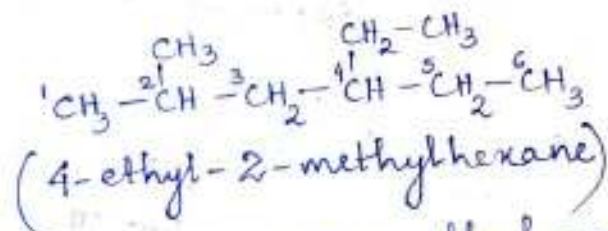 CH3 CH2-CH3
1CH3-2CH-3CH2-4CH-5CH2-6CH3
(4-ethyl-2-methylhexane)